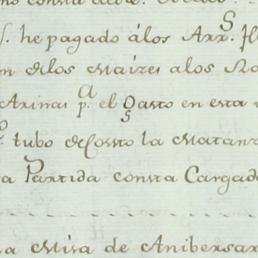 he pagado álos Arrs. fl
n delos Maizes alos
Arinas pa. el Gasto en esta
tubo decosto la Matanz
a Partida consta Cargad
a Misa de Anibersar